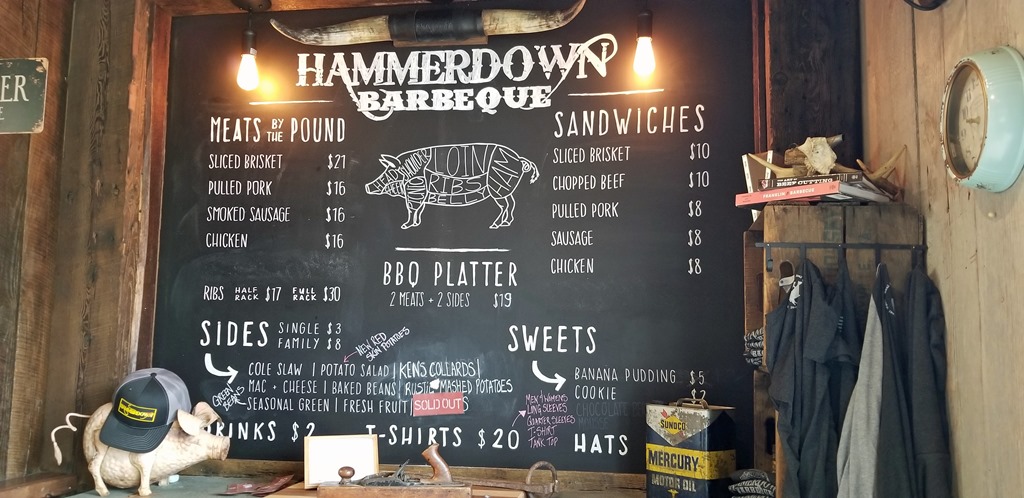 ER
HAMMERDOWN
BARBEQUE
MEATS BY THE POUND
SLICED BRISKET $21
PULLED PORK $16
SMOKED SAUSAGE $16
CHICKEN $16
RIBS HALF RACK $17 FULL RACK $30
LOIN
RIBS
BELLY
BBQ PLATTER
2 MEATS + 2 SIDES $19
SANDWICHES
SLICED BRISKET $10
CHOPPED BEEF $10
PULLED PORK $8
SAUSAGE $8
CHICKEN $8
SIDES SINGLE $3
FAMILY $8
NEW RED
SKIN POTATOES
COLE SLAW | POTATO SALAD | KENS COLLARDS |
MAC + CHEESE | BAKED BEANS | RUSTIC MASHED POTATOES
GREEN
BEANS
SEASONAL GREEN | FRESH FRUIT
SOLD OUT
DRINKS $2
T-SHIRTS $20
MEN + WOMENS
LONG SLEEVES
QUARTER SLEEVES
T-SHIRT
TANK TOP
SWEETS
BANANA PUDDING $5
COOKIE
CHOCOLATE
HATS
HAMMERDOWN
SUNOCO
MERCURY
MOTOR OIL
BEEF CUTTING
FRANKLIN BARBECUE